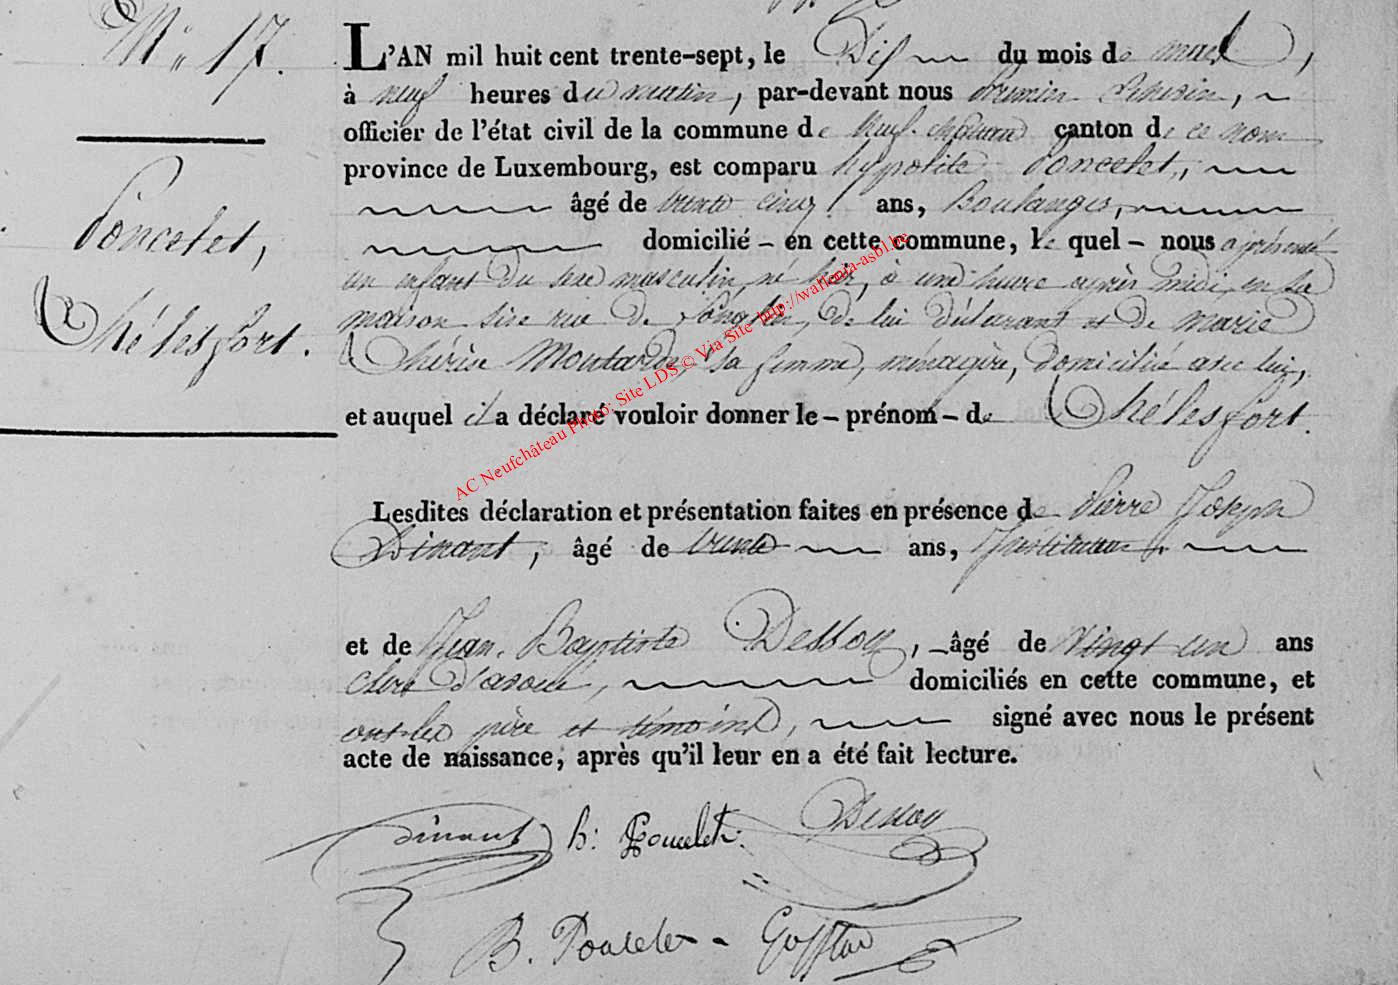 N° 17.
L'AN mil huit cent trente-sept, le Dix du mois de mars,
à neuf heures du matin, par-devant nous premier Echevin,
officier de l'état civil de la commune de Neufchateau canton de ce nom
province de Luxembourg, est comparu hypolite Poncelet,
âgé de trente cinq ans, Boulanger,
domicilié – en cette commune, le quel – nous a présenté
un enfant du sexe masculin, né hier, à une heure après midi, en sa
maison sise rue de, de lui déclarant et de marie
Thérèse Moutarde, sa femme, ménagère, domiciliée avec lui,
et auquel il a déclaré vouloir donner le – prénom – de Thélesfort.
Poncelet,
Thélesfort.
Lesdites déclaration et présentation faites en présence de Pierre Joseph
Dinant, âgé de trente ans, Instituteur,
et de Jean Baptiste Dessoy, âgé de vingt un ans
clerc d'avoué, domiciliés en cette commune, et
ont les père et témoins, signé avec nous le présent
acte de naissance, après qu'il leur en a été fait lecture.
Dinant h: Poncelet. Dessoy
B. Poncelet –
AC Neufchâteau Photo: Site LDS © Via Site http://wallonia-asbl.be